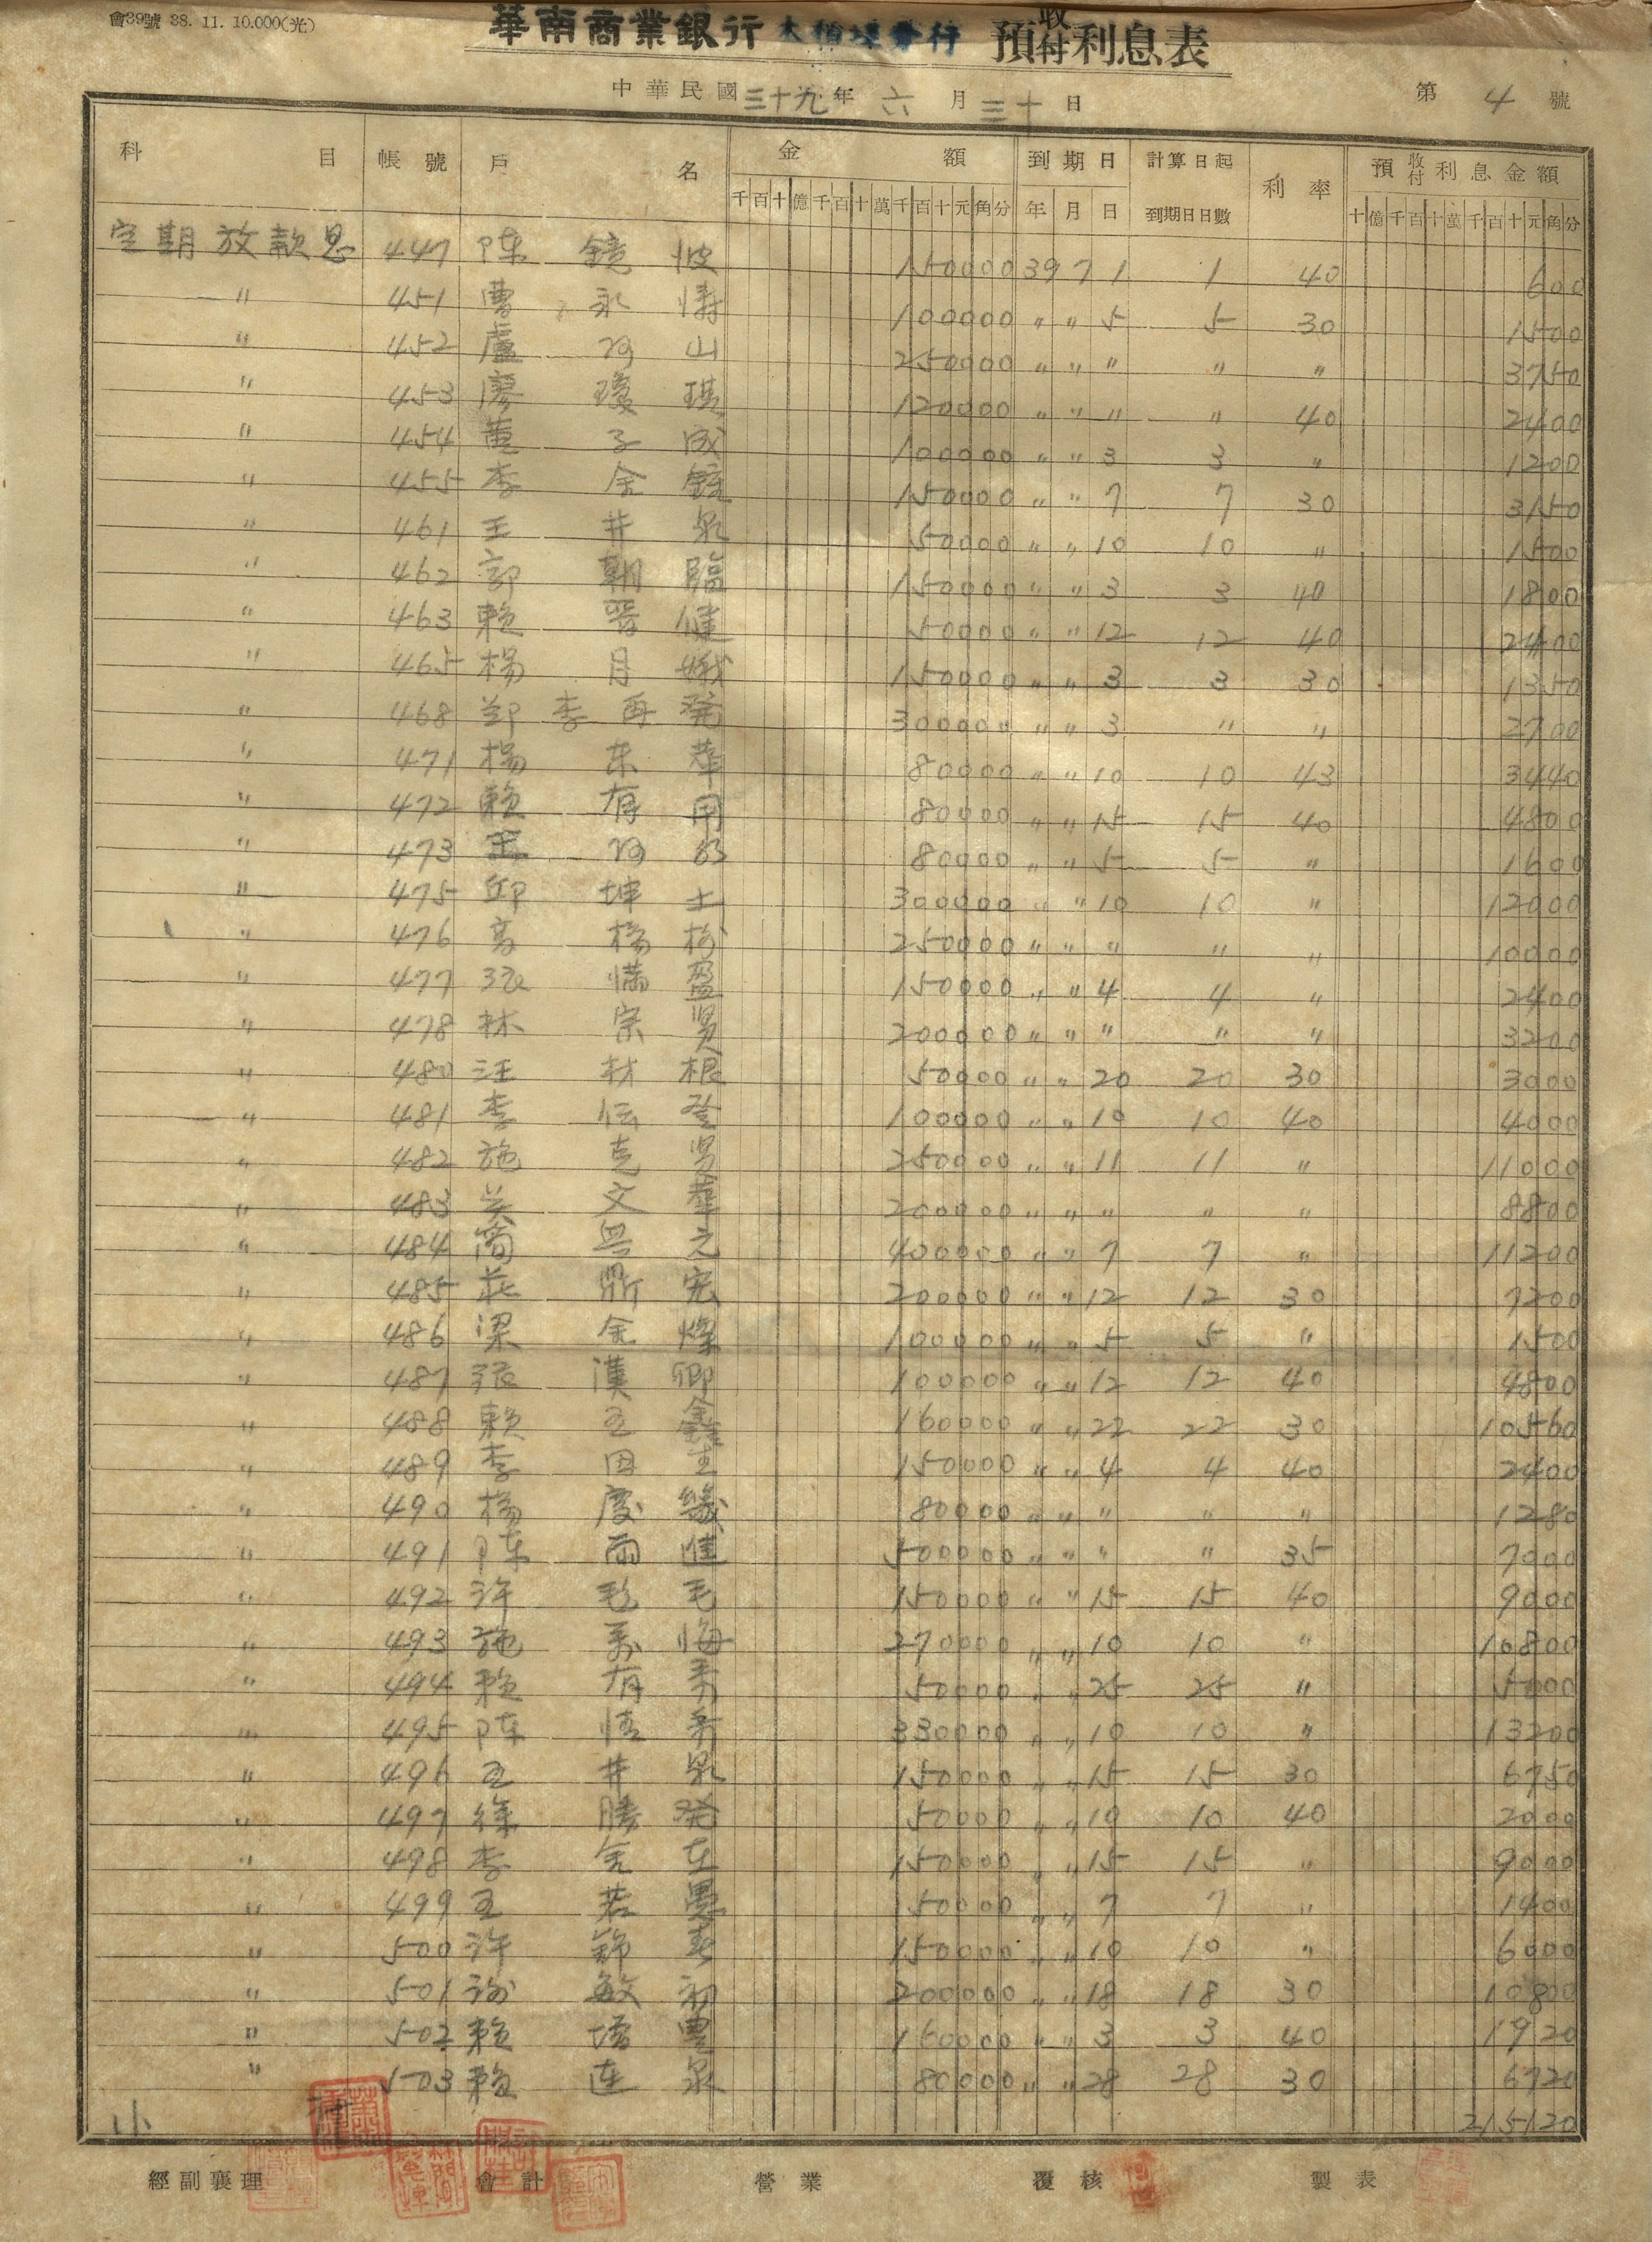 會39號 38. 11. 10.000(光)
華南商業銀行 大稻埕分行 預收付利息表
中華民國三十九年 六月三十日 第4號
科目 帳號 戶名 金額 到期日 計算日起到期日日數 利率 預收付利息金額
千百十億千百十萬千百十元角分 年月日 十億千百十萬千百十元角分
定期放款息 447 陈鏡波 150000 39 7 1 1 40 600
〃 451 曹永 100000 〃 〃 5 5 30 1500
〃 452 盧阿山 250000 〃 〃 〃 〃 〃 3750
〃 453 廖瓊琪 120000 〃 〃 〃 〃 40 2400
〃 454 黃子成 100000 〃 〃 3 3 〃 1200
〃 455 李金 150000 〃 〃 7 7 30 3150
〃 461 王井泉 50000 〃 〃 10 10 〃 1500
〃 462 郭朝臨 150000 〃 〃 3 3 40 1800
〃 463 賴晋健 50000 〃 〃 12 12 40 2400
〃 465 楊月娥 150000 〃 〃 3 3 30 1350
〃 468 鄭李再發 300000 〃 〃 3 〃 〃 2700
〃 471 楊东華 80000 〃 〃 10 10 43 3440
〃 472 賴有用 80000 〃 〃 15 15 40 4800
〃 473 阿 80000 〃 〃 5 5 〃 1600
〃 475 邱坤土 300000 〃 〃 10 10 〃 12000
〃 476 高楊 250000 〃 〃 〃 〃 〃 10000
〃 477 張滿盈 150000 〃 〃 4 4 〃 2400
〃 478 林宗賢 200000 〃 〃 〃 〃 〃 3200
〃 480 汪材根 50000 〃 〃 20 20 30 3000
〃 481 李伝登 100000 〃 〃 10 10 40 4000
〃 482 施克 250000 〃 〃 11 11 〃 11000
〃 483 吴文華 200000 〃 〃 〃 〃 〃 8800
〃 484 簡元 400000 〃 〃 7 7 〃 11200
〃 485 莊鼎宏 200000 〃 〃 12 12 30 7200
〃 486 梁金燦 100000 〃 〃 5 5 〃 1500
〃 487 張漢卿 100000 〃 〃 12 12 40 4800
〃 488 賴玉鑫 160000 〃 〃 22 22 30 10560
〃 489 李因生 150000 〃 〃 4 4 40 2400
〃 490 楊慶幾 80000 〃 〃 〃 〃 〃 1280
〃 491 陈雨 500000 〃 〃 〃 〃 35 7000
〃 492 許毛 150000 〃 〃 15 15 40 9000
〃 493 施海 270000 〃 〃 10 10 〃 10800
〃 494 賴有 50000 〃 〃 25 25 〃 5000
〃 495 陈 330000 〃 〃 10 10 〃 13200
〃 496 王井泉 150000 〃 〃 15 15 30 6750
〃 497 徐勝發 50000 〃 〃 10 10 40 2000
〃 498 李金生 150000 〃 〃 15 15 〃 9000
〃 499 王若愚 50000 〃 〃 7 7 〃 1400
〃 500 許錦春 150000 〃 〃 10 10 〃 6000
〃 501 謝敏初 200000 〃 〃 18 18 30 10800
〃 502 賴豊 160000 〃 〃 3 3 40 1920
〃 503 賴連泉 80000 〃 〃 28 28 30 6720
小 215120
經副襄理 會計 營業 覆核 製表